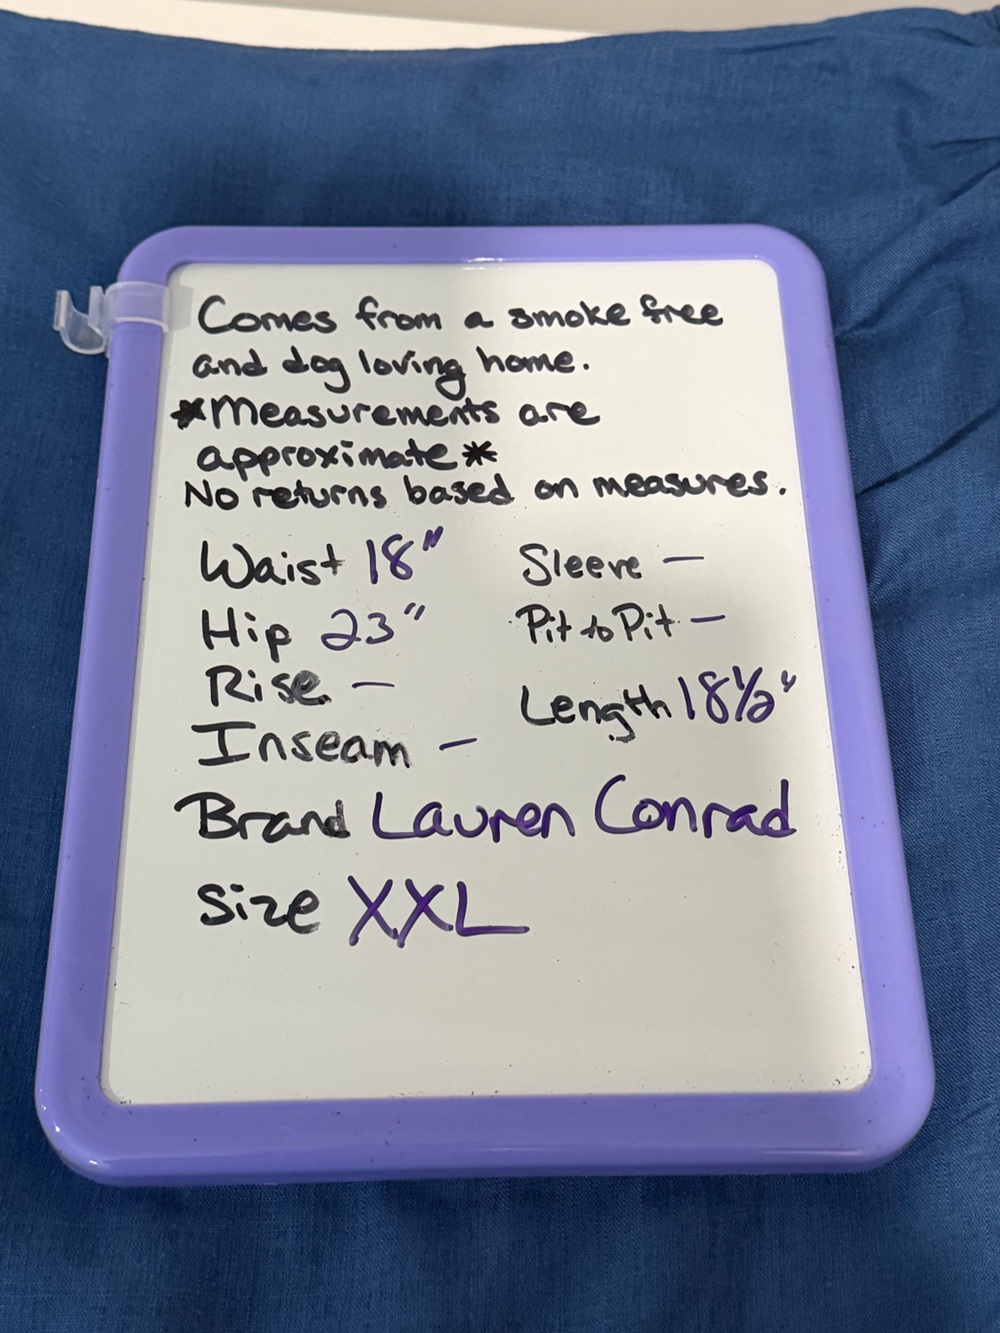 Comes from a smoke free
and dog loving home.
*Measurements are
approximate*
No returns based on measures.
Waist 18" Sleeve —
Hip 23" Pit to Pit —
Rise — Length 18½"
Inseam —
Brand Lauren Conrad
Size XXL